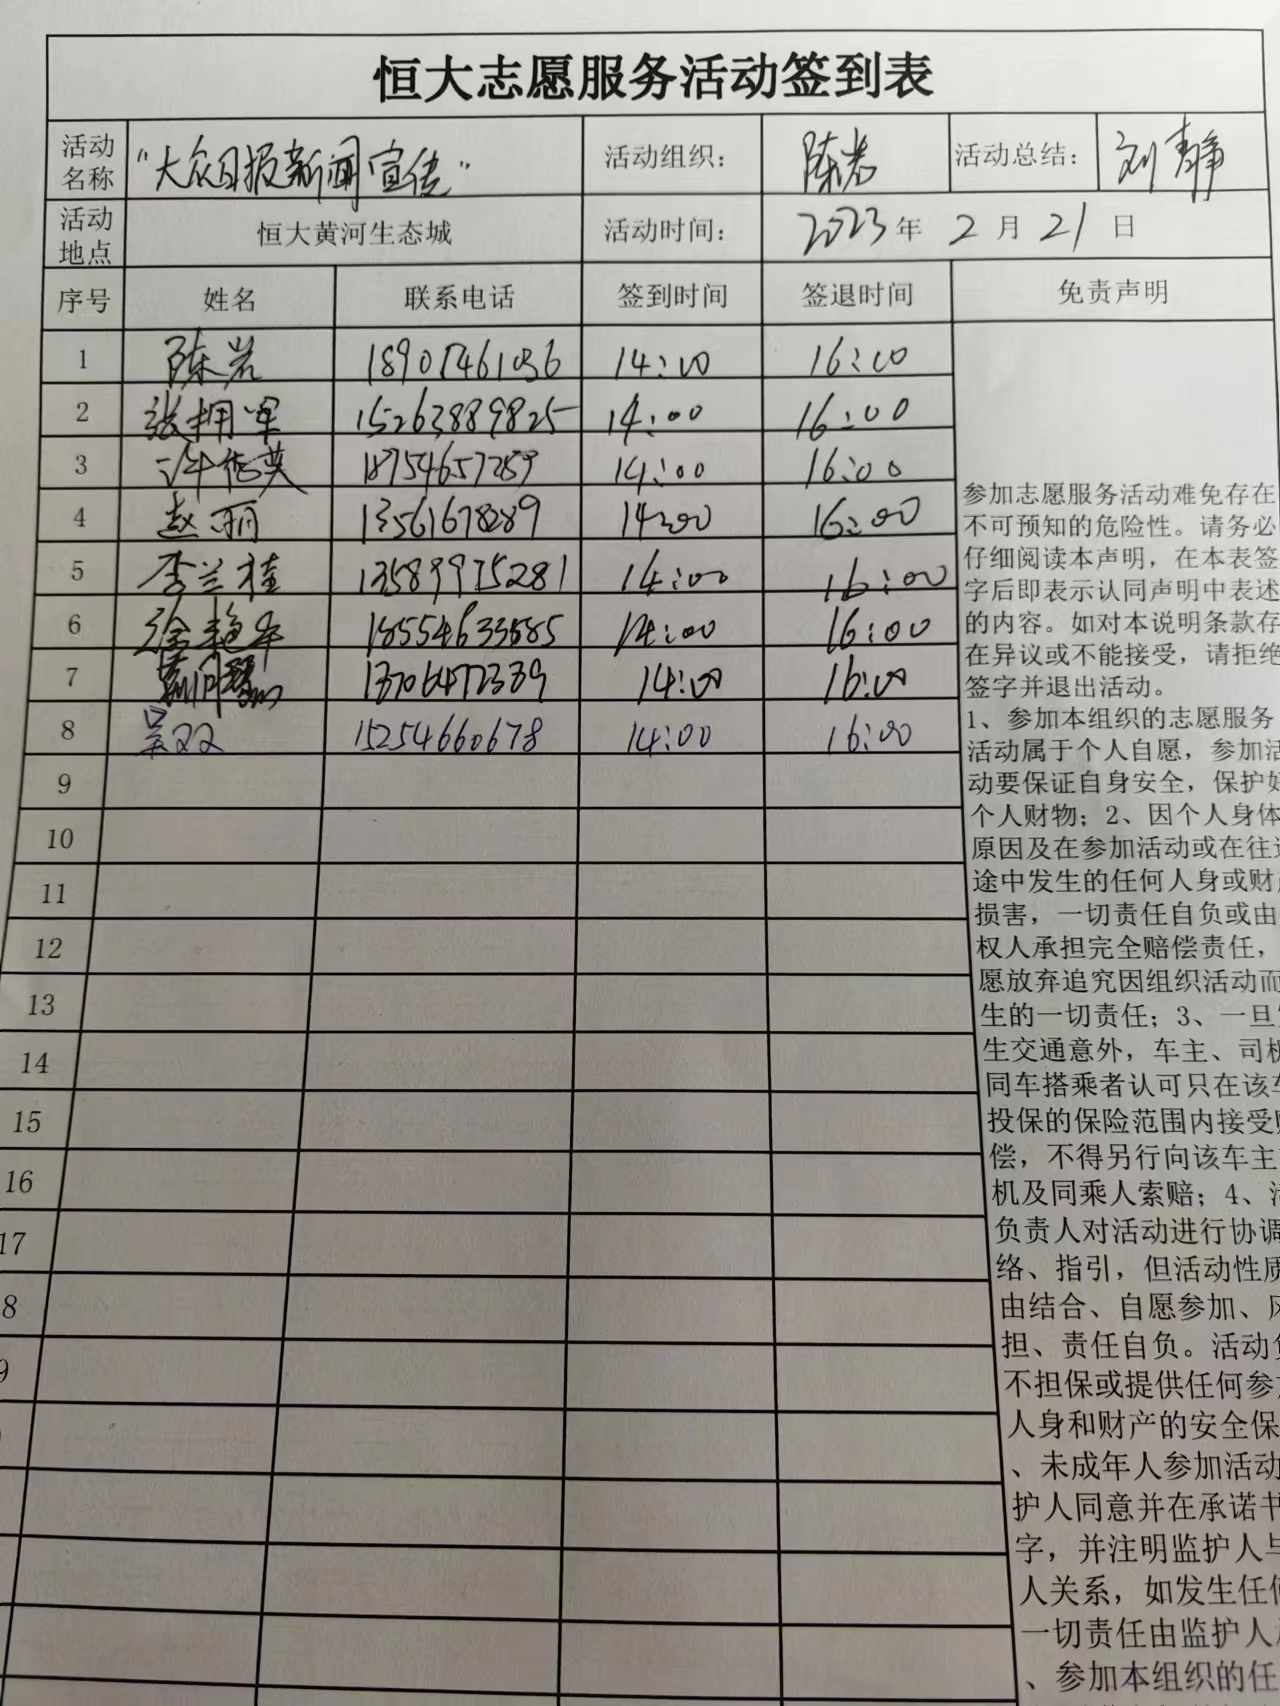 恒大志愿服务活动签到表
活动名称 "大众日报新闻宣传" 活动组织： 陈岩 活动总结： 刘静
活动地点 恒大黄河生态城 活动时间： 2023年 2月 21日
序号 姓名 联系电话 签到时间 签退时间 免责声明
1 陈岩 18907461036 14:00 16:00
2 张拥军 15263889825 14:00 16:00
3 许 英 18754657259 14:00 16:00
4 赵丽 13561678289 14:00 16:00
5 李兰桂 13589975281 14:00 16:00
6 徐艳平 18554633885 14:00 16:00
7 13706472339 14:00 16:00
8 吴双 15254660678 14:00 16:00
9
10
11
12
13
14
15
16
17
8
9
参加志愿服务活动难免存在
不可预知的危险性。请务必
仔细阅读本声明，在本表签
字后即表示认同声明中表述
的内容。如对本说明条款存
在异议或不能接受，请拒绝
签字并退出活动。
1、参加本组织的志愿服务
活动属于个人自愿，参加活
动要保证自身安全，保护好
个人财物；2、因个人身体
原因及在参加活动或在往返
途中发生的任何人身或财产
损害，一切责任自负或由
权人承担完全赔偿责任，
愿放弃追究因组织活动而
生的一切责任；3、一旦
生交通意外，车主、司机
同车搭乘者认可只在该车
投保的保险范围内接受赔
偿，不得另行向该车主
机及同乘人索赔；4、活
负责人对活动进行协调
络、指引，但活动性质
由结合、自愿参加、风
担、责任自负。活动负
不担保或提供任何参加
人身和财产的安全保
、未成年人参加活动
护人同意并在承诺书
字，并注明监护人与
人关系，如发生任何
一切责任由监护人
、参加本组织的任